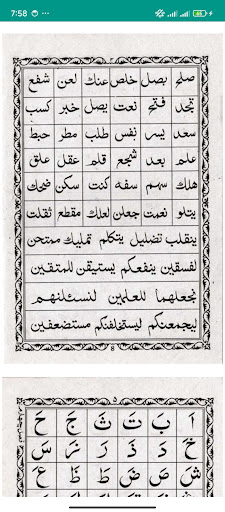 7:58
صلح بصل خلص عنك لعن شفع
تجد فتح نعت يصل خبر كسب
سعد يسر نفس طلب مطر حبط
علم بعد شجع قلم عقل علق
هلك سهم سفه كنت سكن ضحك
يتلو نعمت جعلن لعلك مقطع ثقلت
ينقلب تضليل يتكلم تمليك ممتحن
لفسقين ينفعكم يستيقن للمتقين
نجعلهما للعلمين لنسئلنهم
ليجمعنكم ليستخلفنكم مستضعفين
۵
اَ بَ تَ ثَ جَ حَ
خَ دَ ذَ رَ زَ سَ
شَ صَ ضَ طَ ظَ عَ